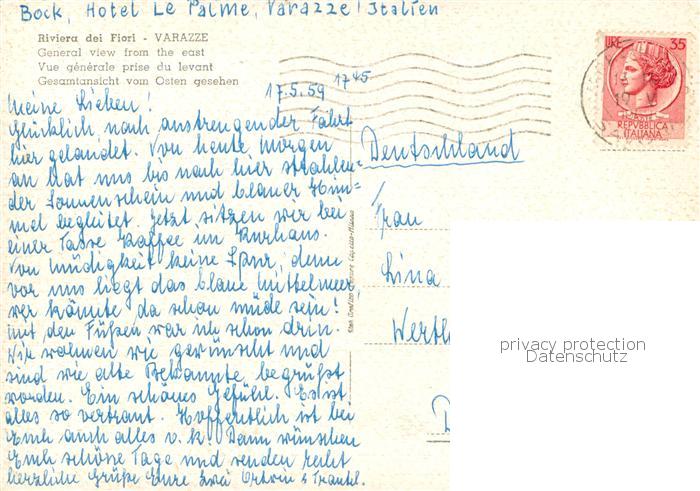 Bock, Hotel Le Palme, Varazze, Italien
Riviera dei Fiori - VARAZZE
General view from the east
Vue générale prise du levant
Gesamtansicht vom Osten gesehen
17.5.59 17⁴⁵
Meine Lieben!
Glücklich nach anstrengender Fahrt
hier gelandet. Von heute morgen
an hat uns bis nach hier strahlen-
der Sonnenschein und blauer Him-
mel begleitet. Jetzt sitzen wir bei
einer Tasse Kaffee im Kurhaus.
Von Müdigkeit keine Spur, denn
vor uns liegt das blaue Mittelmeer,
wer könnte da schon müde sein!
Mit den Füßen war ich schon drin.
Wir wohnen wie gewünscht und
sind wie alte Bekannte begrüßt
worden. Ein schönes Gefühl. Es ist
alles so vertraut. Hoffentlich ist bei
Euch auch alles o.k! Dann wünschen
Euch schöne Tage und senden recht
herzliche Grüße Eure zwei & Trautel.
LIRE 35
REPVBBLICA
ITALIANA
Deutschland
Frau
Lina
privacy protection
Datenschutz